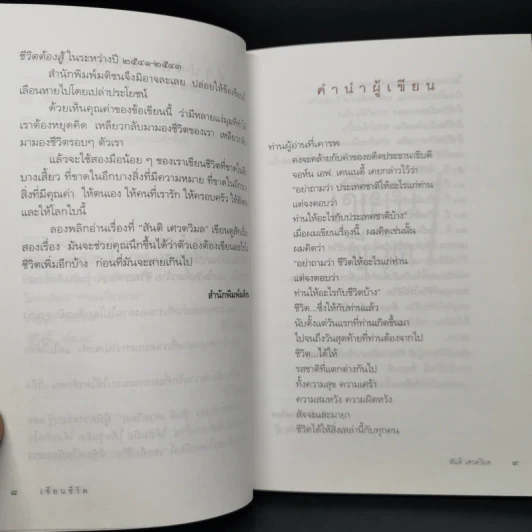 ชีวิตต้องสู้ ในระหว่างปี ๒๕๔๑-๒๕๔๓
สำนักพิมพ์มติชนจึงมิอาจละเลย ปล่อยให้ข้อเขียนนี้
เลือนหายไปโดยเปล่าประโยชน์
ด้วยเห็นคุณค่าของข้อเขียนนี้ ว่ามีหลายแง่มุมที่ทำให้
เราต้องหยุดคิด เหลียวกลับมามองชีวิตของเรา เหลียวกลับ
มามองชีวิตรอบๆ ตัวเรา
แล้วจะใช้สองมือน้อย ๆ ของเราเขียนชีวิตที่ขาดใน
บางเสี้ยว ที่ขาดในอีกบางสิ่งที่มีความหมาย ที่ขาดในอีก
สิ่งที่มีคุณค่า ให้ตนเอง ให้คนที่เรารัก ให้ครอบครัว ให้สังคม
และให้โลกใบนี้
ลองพลิกอ่านเรื่องที่ "สันติ เศวตวิมล" เขียนสัก
สองเรื่อง มันจะช่วยคุณนึกขึ้นได้ว่าตัวเองต้องเขียนอะไร
ชีวิตเพิ่มอีกบ้าง ก่อนที่มันจะสายเกินไป
สำนักพิมพ์มติชน
๘ เขียนชีวิต
คำนำผู้เขียน
ท่านผู้อ่านที่เคารพ
คงจะคล้ายกับคำของอดีตประธานาธิบดี
จอห์น เอฟ. เคนเนดี้ เคยกล่าวไว้ว่า
"อย่าถามว่า ประเทศชาติให้อะไรแก่ท่าน
แต่จงตอบว่า
ท่านให้อะไรกับประเทศชาติบ้าง"
เมื่อผมเขียนเรื่องนี้ ผมคิดเช่นนั้น
ผมคิดว่า
"อย่าถามว่า ชีวิตให้อะไรแก่ท่าน
แต่จงตอบว่า
ท่านให้อะไรกับชีวิตบ้าง"
ชีวิต...ซึ่งให้กับท่านแล้ว
นับตั้งแต่วันแรกที่ท่านเกิดขึ้นมา
ไปจนถึงวันสุดท้ายที่ท่านต้องจากไป
ชีวิต...ได้ให้
รสชาติที่แตกต่างกันไป
ทั้งความสุข ความเศร้า
ความสมหวัง ความผิดหวัง
สัจจะและมายา
ชีวิตได้ให้สิ่งเหล่านี้กับทุกคน
สันติ เศวตวิมล ๙